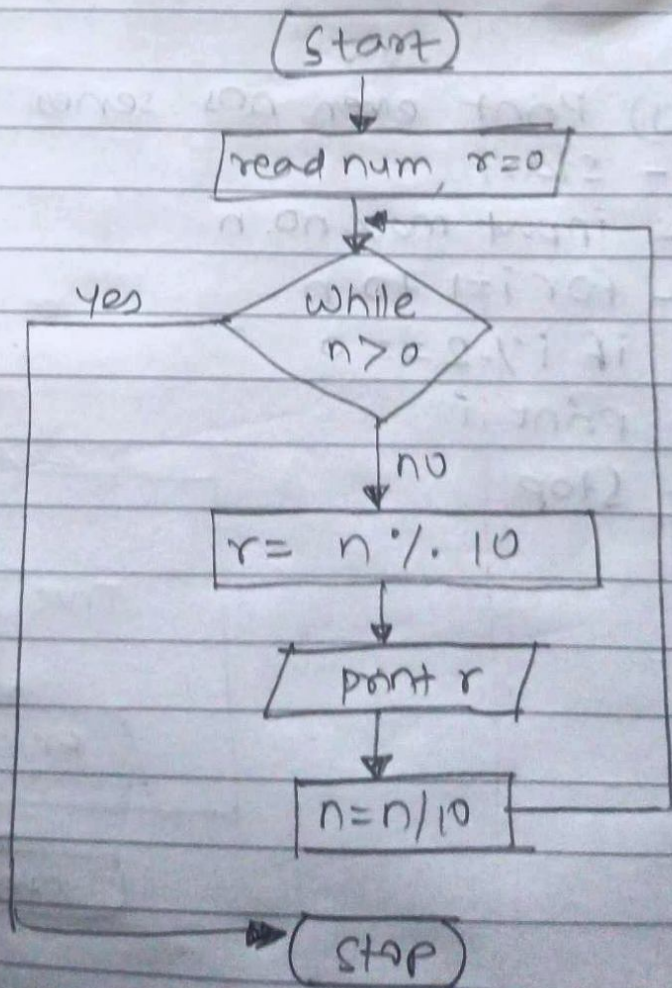 Start
read num, r=0
while
n>0
yes
no
r= n % 10
print r
n=n/10
Stop